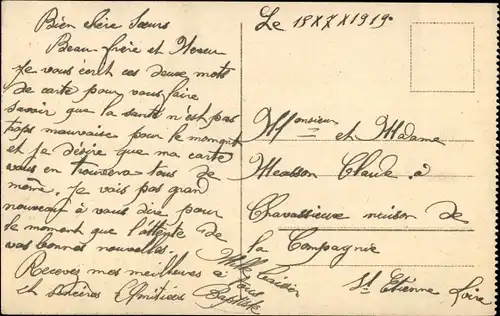 Bien chère Sœurs
Beau-frère et Neveu
Je vous écrit ces deux mots
de carte pour vous faire
savoir que la santé n'est pas
trops mauvaise pour le moment
et je désire que ma carte
vous en trouvera tous de
même. Je vais pas grand
nouveau à vous dire pour
le moment que l'attente de
vos bonnes nouvelles.
Recevez mes meilleures
et sincères Amitiées
à tous
Baptiste
Le 18 X 7 X 1919.
Monsieur et Madame
Measson Claude à
Chavassieux maison de
la Compagnie
St Etienne Loire